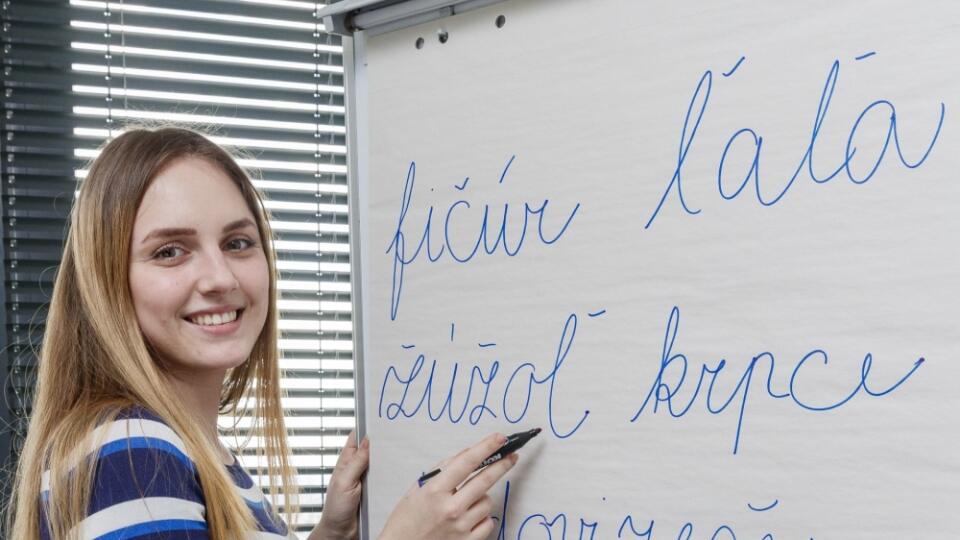 fičúr ľaľa
žúžoľ krpce